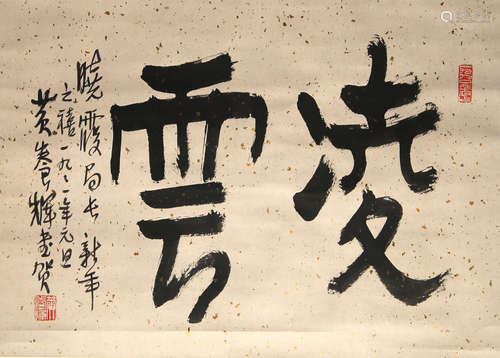 凌雲
曉霞局长新年
之禧一九八一年元旦
黄養辉書贺